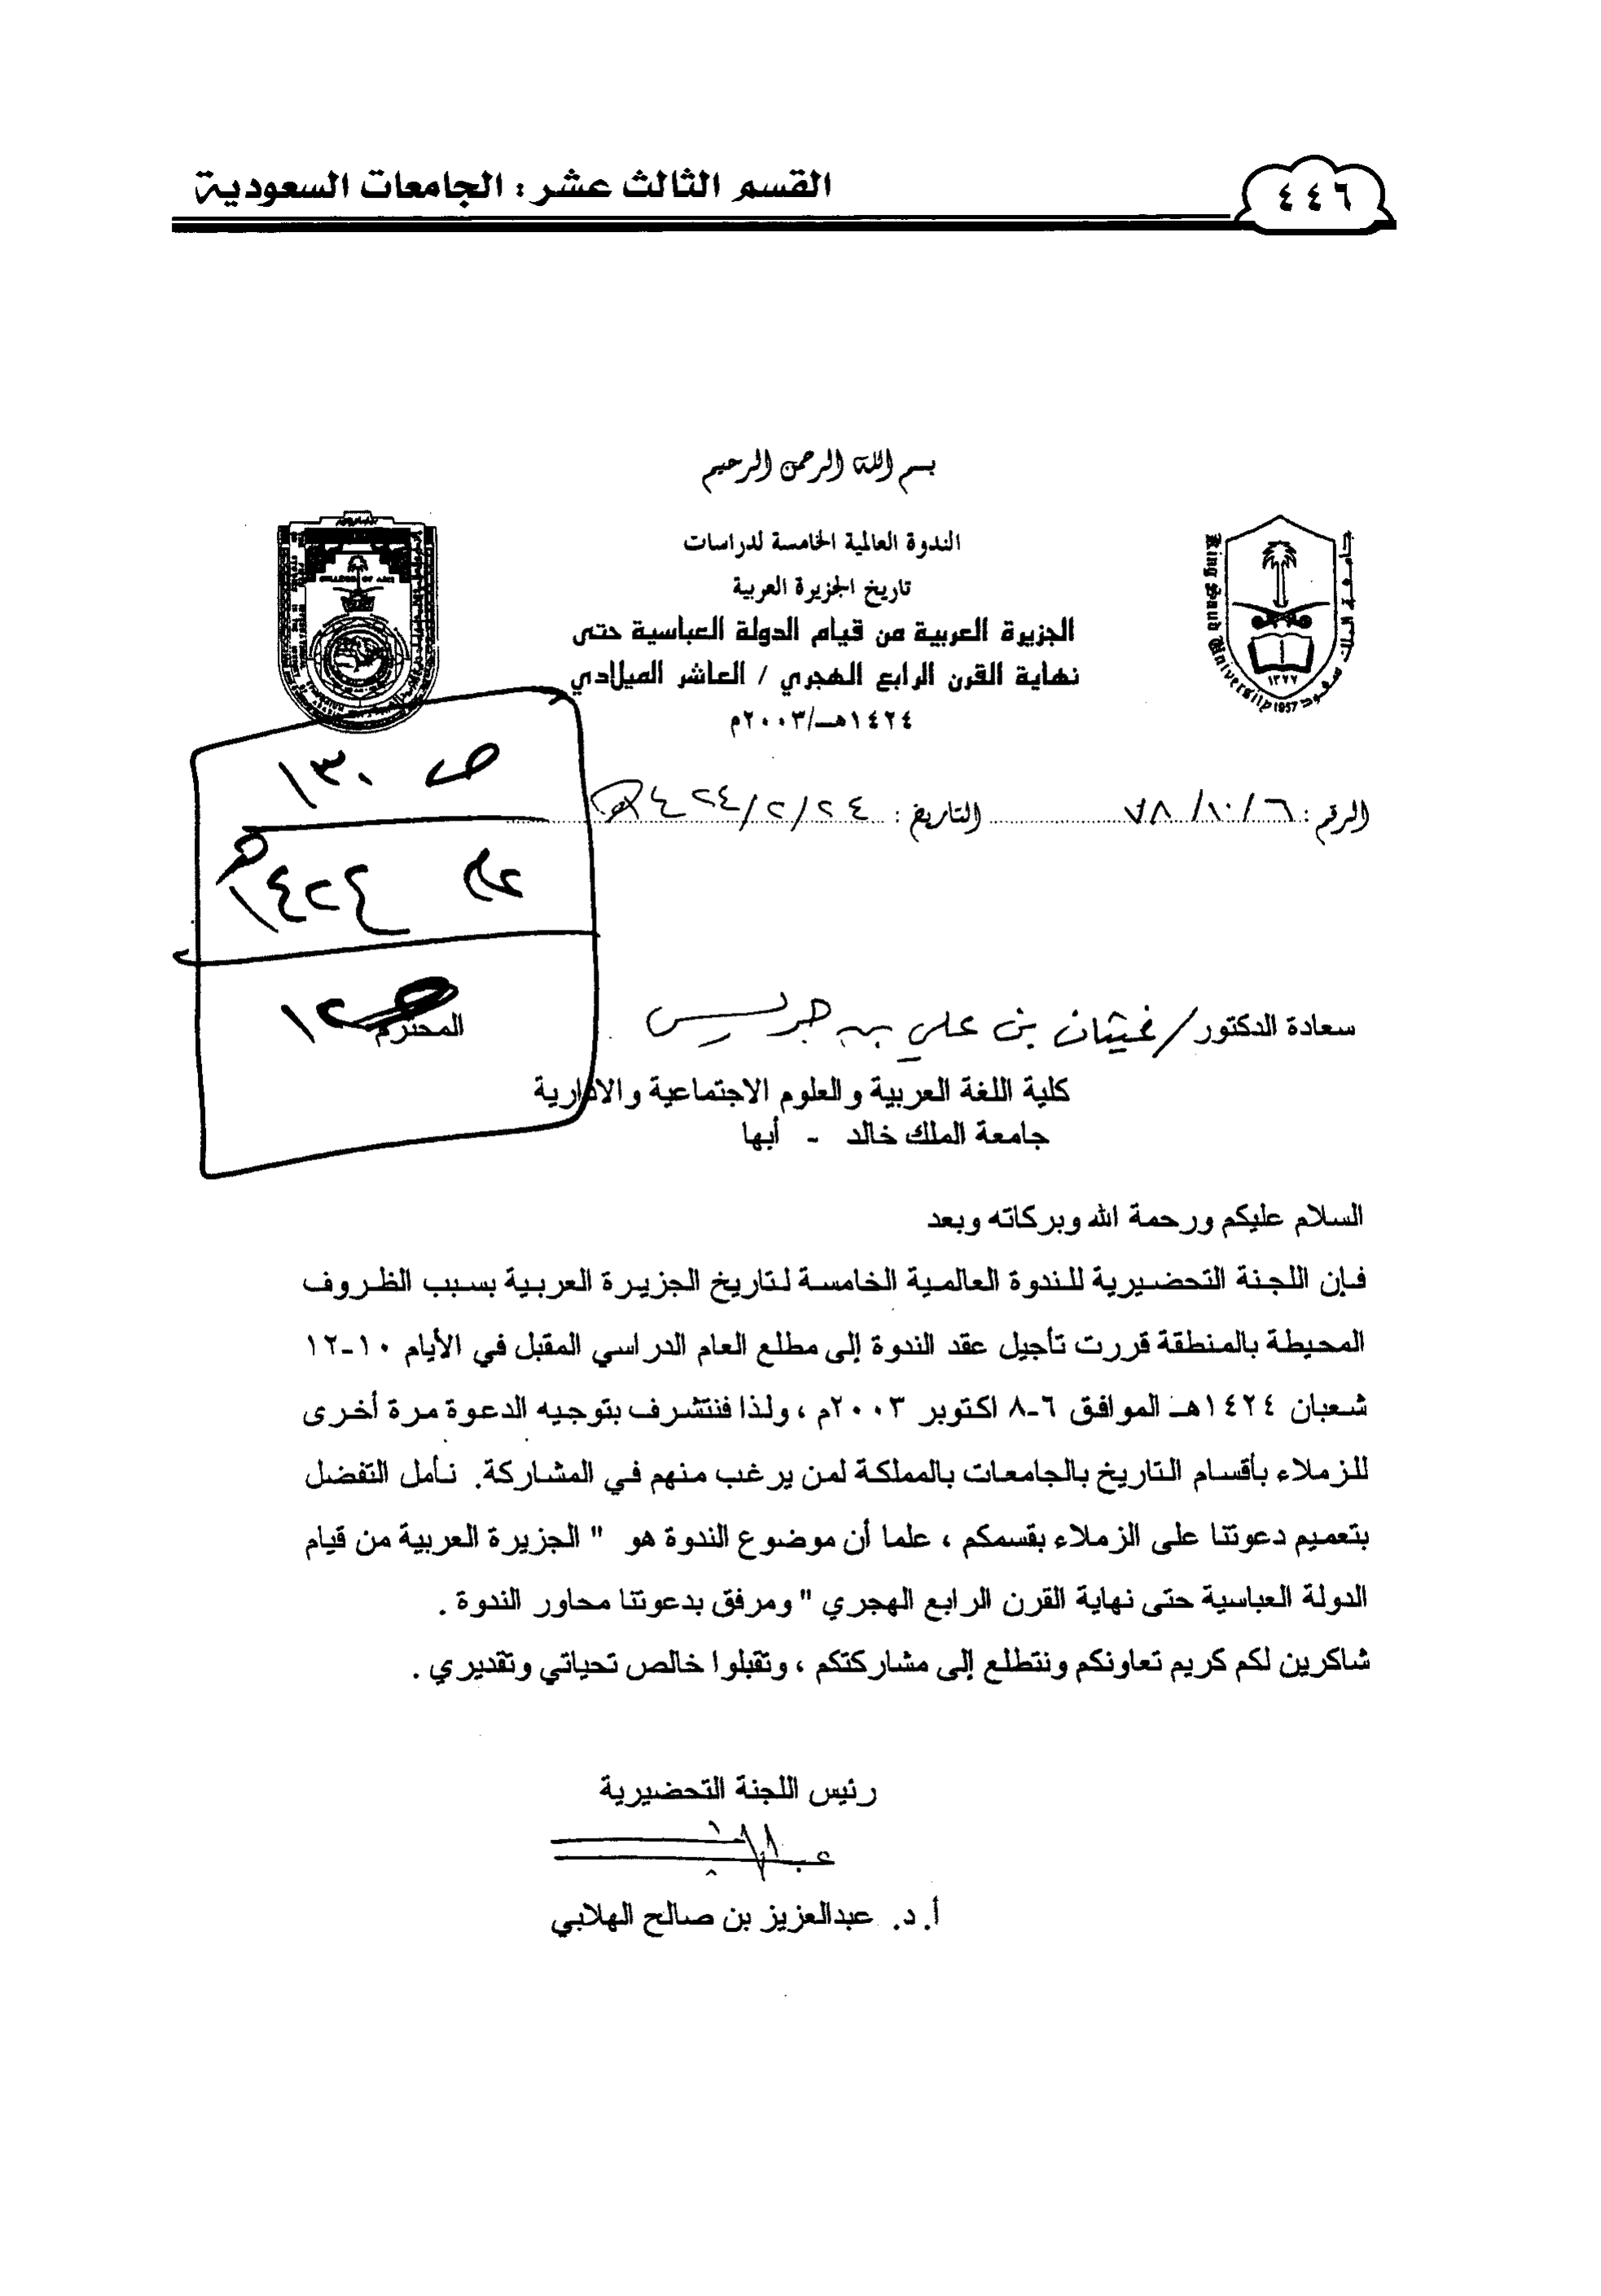 القسم الثالث عشر : الجامعات السعودية
٤٤٦
بسم الله الرحمن الرحيم
الندوة العالمية الخامسة لدراسات
تاريخ الجزيرة العربية
الجزيرة العربية من قيام الدولة العباسية حتى
نهاية القرن الرابع الهجري / العاشر الميلادي
١٤٢٤هـ/٢٠٠٣م
جامعة الملك سعود
King Saud University 1957
١٣٧٧
الرقم : ٧٨/١٠/٦ التاريخ : ٢٤/٢/١٤٢٤هـ
ص ١٣٠
عام ١٤٢٤هـ
سعادة الدكتور / غيثان بن علي بن جريس المحترم
كلية اللغة العربية والعلوم الاجتماعية والادارية
جامعة الملك خالد - أبها
السلام عليكم ورحمة الله وبركاته وبعد
فإن اللجنة التحضيرية للندوة العالمية الخامسة لتاريخ الجزيرة العربية بسبب الظروف
المحيطة بالمنطقة قررت تأجيل عقد الندوة إلى مطلع العام الدراسي المقبل في الأيام ١٠-١٢
شعبان ١٤٢٤هـ الموافق ٦-٨ اكتوبر ٢٠٠٣م ، ولذا فنتشرف بتوجيه الدعوة مرة أخرى
للزملاء بأقسام التاريخ بالجامعات بالمملكة لمن يرغب منهم في المشاركة. نأمل التفضل
بتعميم دعوتنا على الزملاء بقسمكم ، علما أن موضوع الندوة هو " الجزيرة العربية من قيام
الدولة العباسية حتى نهاية القرن الرابع الهجري " ومرفق بدعوتنا محاور الندوة .
شاكرين لكم كريم تعاونكم ونتطلع إلى مشاركتكم ، وتقبلوا خالص تحياتي وتقديري .
رئيس اللجنة التحضيرية
أ. د. عبدالعزيز بن صالح الهلابي